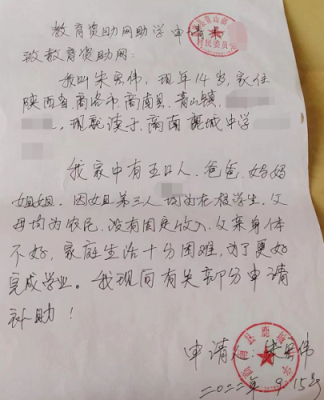 教育资助网助学申请书
村民委员会
致教育资助网:
我叫朱伟,现年14岁,家住
陕西省商洛市商南县,青山镇,
,现就读于,商南鹿城中学
我家中有五口人.爸爸,妈妈
姐姐.因姐弟三人均为在校学生,父
母均为农民,没有固定收入,父亲身体
不好,家庭生活十分困难,为了更好
完成学业。我现向有关部分申请
补助!
申请人:朱伟
二〇二二年9.15号